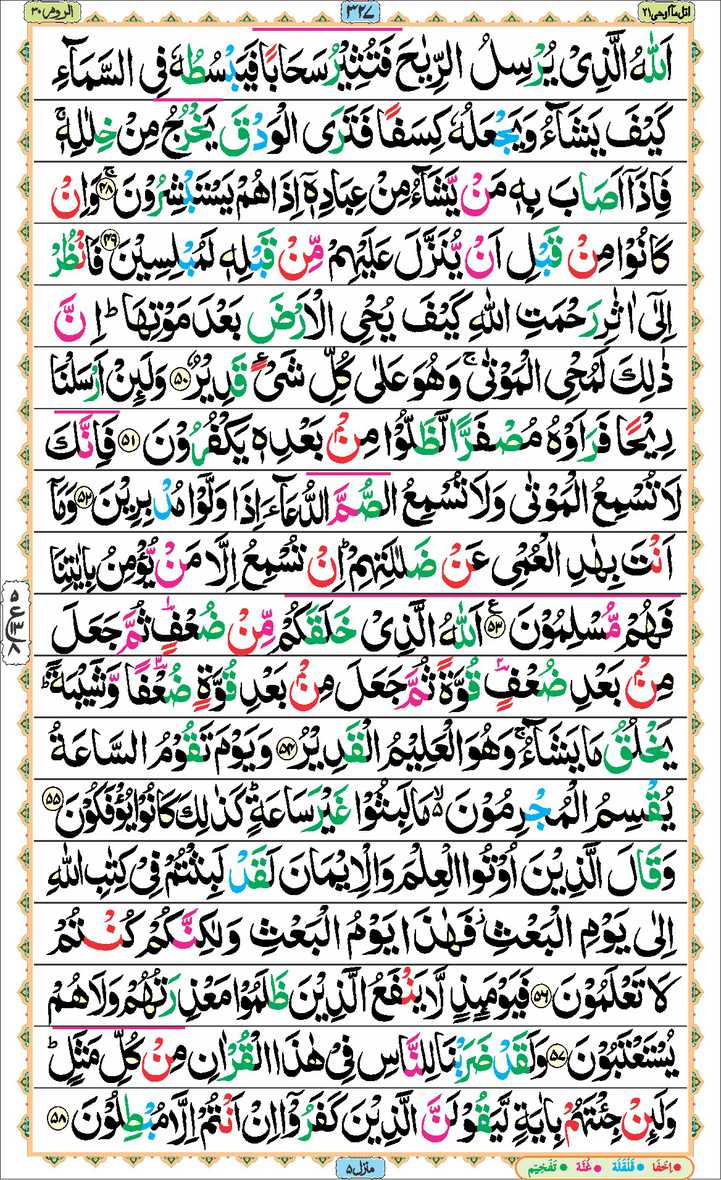 اتل ما اوحی ۲۱
۳۲۷
الروم ۳۰
اَللّٰهُ الَّذِیْ یُرْسِلُ الرِّیٰحَ فَتُثِیْرُ سَحَابًا فَیَبْسُطُهٗ فِی السَّمَآءِ
كَیْفَ یَشَآءُ وَیَجْعَلُهٗ كِسَفًا فَتَرَی الْوَدْقَ یَخْرُجُ مِنْ خِلٰلِهٖۚ
فَاِذَاۤ اَصَابَ بِهٖ مَنْ یَّشَآءُ مِنْ عِبَادِهٖۤ اِذَا هُمْ یَسْتَبْشِرُوْنَۚ ۴۸ وَاِنْ
كَانُوْا مِنْ قَبْلِ اَنْ یُّنَزَّلَ عَلَیْهِمْ مِّنْ قَبْلِهٖ لَمُبْلِسِیْنَ ۴۹ فَانْظُرْ
اِلٰۤی اٰثٰرِ رَحْمَتِ اللّٰهِ كَیْفَ یُحْیِ الْاَرْضَ بَعْدَ مَوْتِهَاؕ اِنَّ
ذٰلِكَ لَمُحْیِ الْمَوْتٰیۚ وَهُوَ عَلٰی كُلِّ شَیْءٍ قَدِیْرٌ ۵۰ وَلَىِٕنْ اَرْسَلْنَا
رِیْحًا فَرَاَوْهُ مُصْفَرًّا لَّظَلُّوْا مِنْۢ بَعْدِهٖ یَكْفُرُوْنَ ۵۱ فَاِنَّكَ
لَا تُسْمِعُ الْمَوْتٰی وَلَا تُسْمِعُ الصُّمَّ الدُّعَآءَ اِذَا وَلَّوْا مُدْبِرِیْنَ ۵۲ وَمَاۤ
اَنْتَ بِهٰدِ الْعُمْیِ عَنْ ضَلٰلَتِهِمْؕ اِنْ تُسْمِعُ اِلَّا مَنْ یُّؤْمِنُ بِاٰیٰتِنَا
فَهُمْ مُّسْلِمُوْنَ ۵۳ ع اَللّٰهُ الَّذِیْ خَلَقَكُمْ مِّنْ ضُعْفٍ ثُمَّ جَعَلَ
مِنْۢ بَعْدِ ضُعْفٍ قُوَّةً ثُمَّ جَعَلَ مِنْۢ بَعْدِ قُوَّةٍ ضُعْفًا وَّشَیْبَةًؕ
یَخْلُقُ مَا یَشَآءُۚ وَهُوَ الْعَلِیْمُ الْقَدِیْرُ ۵۴ وَیَوْمَ تَقُوْمُ السَّاعَةُ
یُقْسِمُ الْمُجْرِمُوْنَ ۙ۬ مَا لَبِثُوْا غَیْرَ سَاعَةٍؕ كَذٰلِكَ كَانُوْا یُؤْفَكُوْنَ ۵۵
وَقَالَ الَّذِیْنَ اُوْتُوا الْعِلْمَ وَالْاِیْمَانَ لَقَدْ لَبِثْتُمْ فِیْ كِتٰبِ اللّٰهِ
اِلٰی یَوْمِ الْبَعْثِؗ فَهٰذَا یَوْمُ الْبَعْثِ وَلٰكِنَّكُمْ كُنْتُمْ
لَا تَعْلَمُوْنَ ۵۶ فَیَوْمَىِٕذٍ لَّا یَنْفَعُ الَّذِیْنَ ظَلَمُوْا مَعْذِرَتُهُمْ وَلَا هُمْ
یُسْتَعْتَبُوْنَ ۵۷ وَلَقَدْ ضَرَبْنَا لِلنَّاسِ فِیْ هٰذَا الْقُرْاٰنِ مِنْ كُلِّ مَثَلٍؕ
وَلَىِٕنْ جِئْتَهُمْ بِاٰیَةٍ لَّیَقُوْلَنَّ الَّذِیْنَ كَفَرُوْۤا اِنْ اَنْتُمْ اِلَّا مُبْطِلُوْنَ ۵۸
منزل ۵
اِخفَا قَلْقَلَة غُنَّة تَفْخِیْم